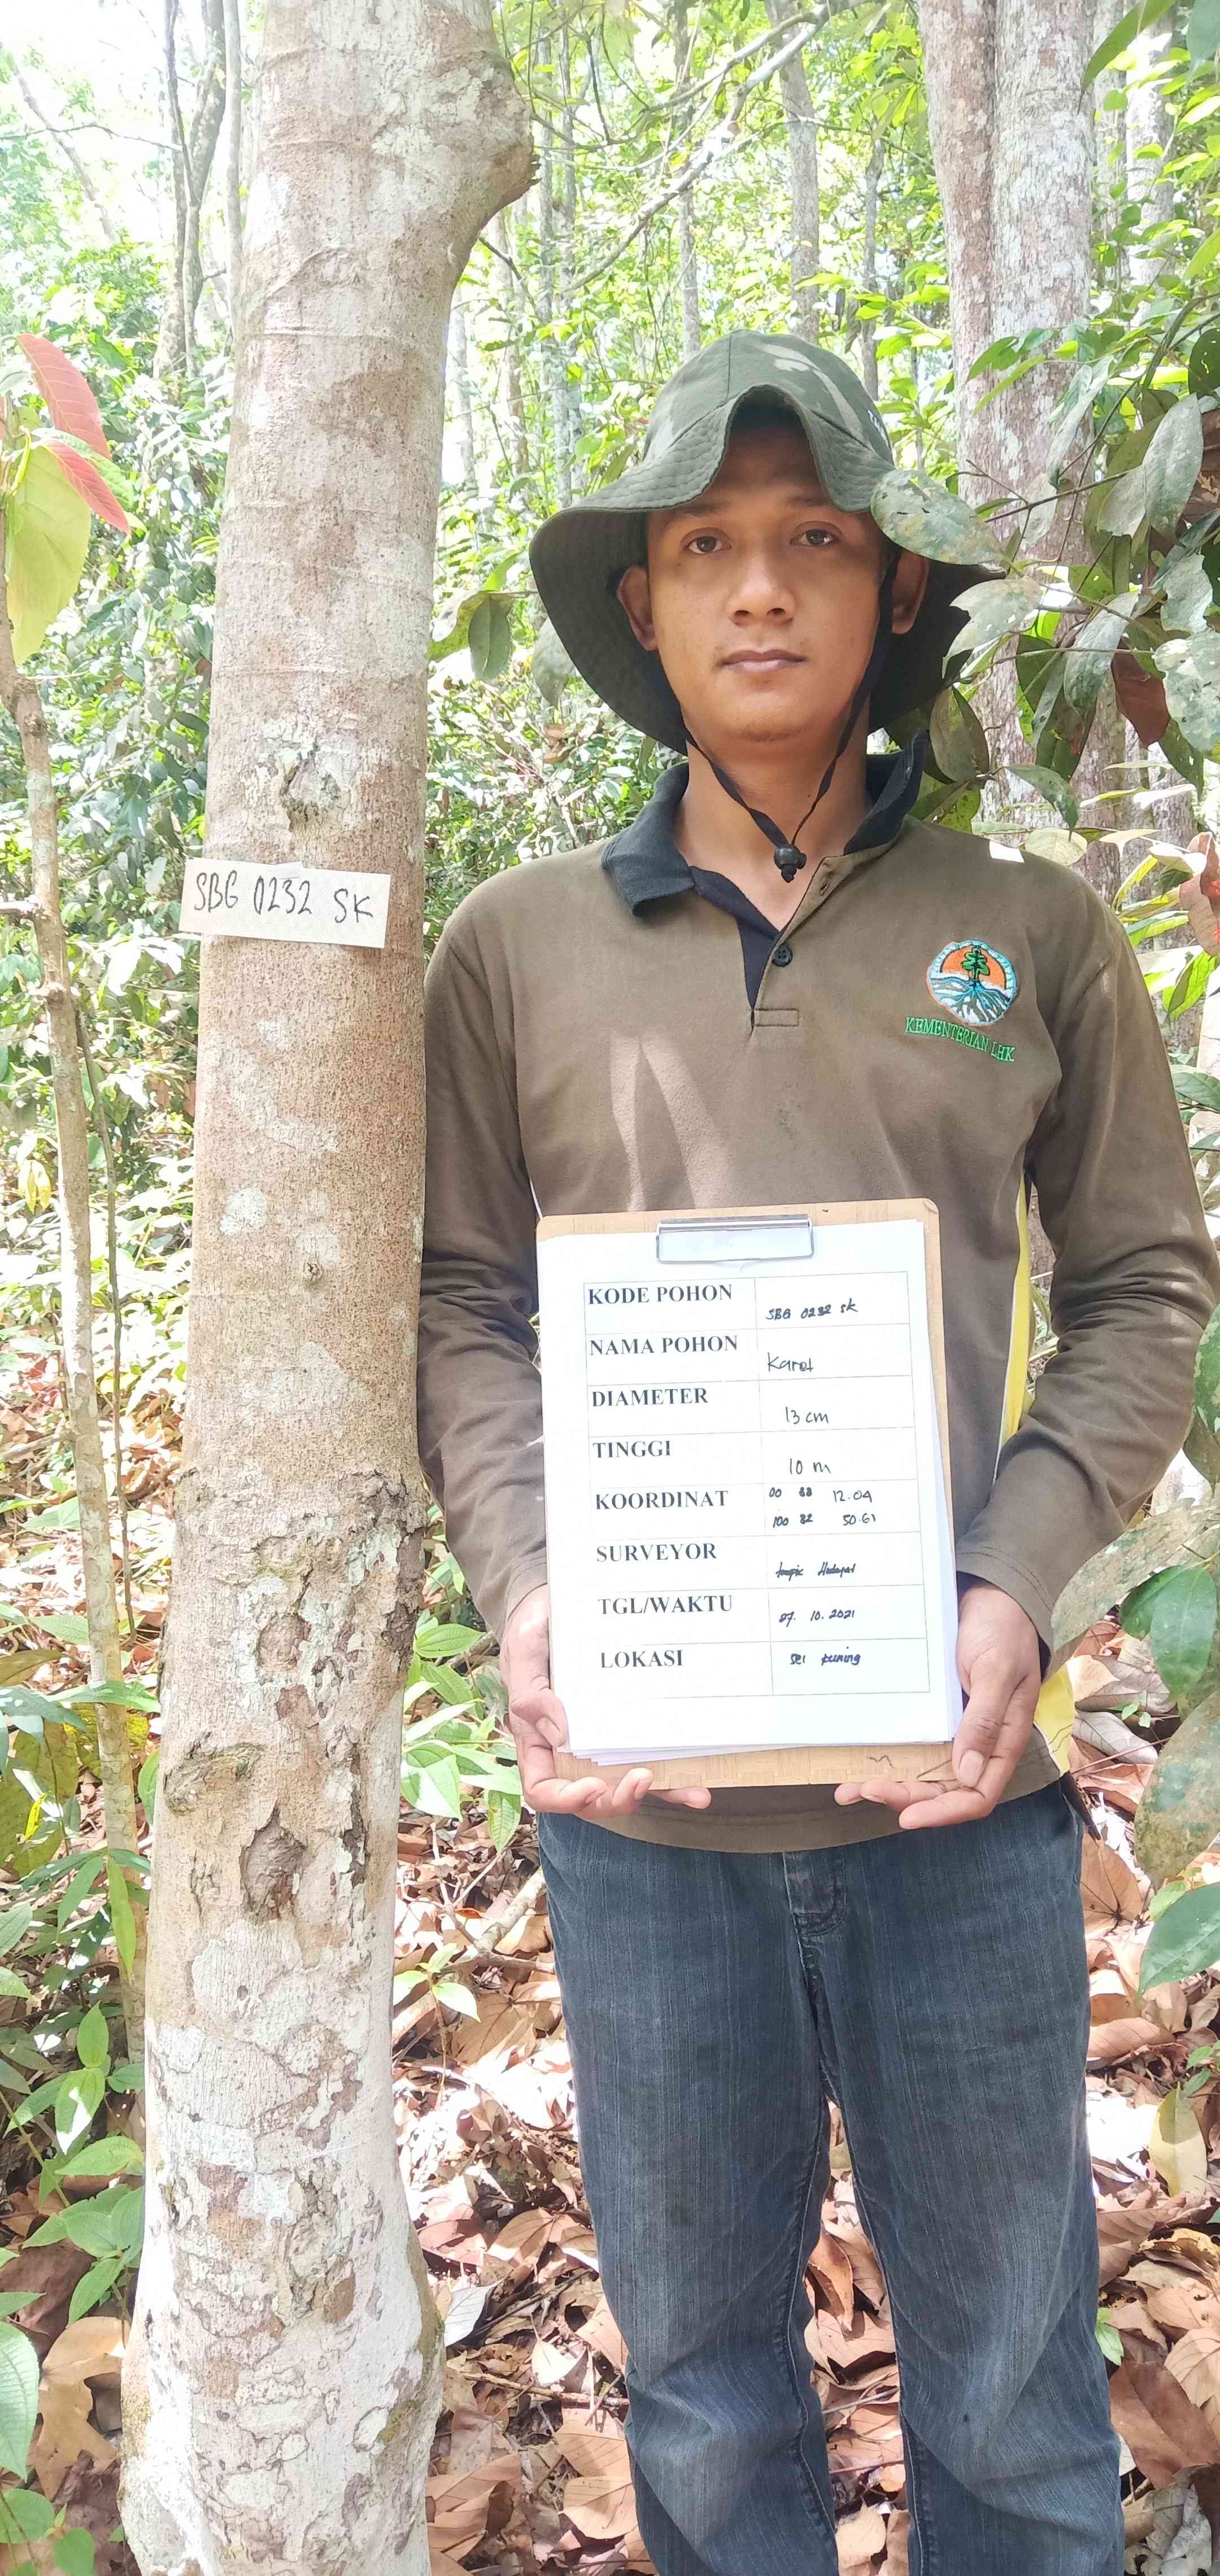 SBG 0232 SK
KEMENTERIAN LHK
KODE POHON SBG 0232 SK
NAMA POHON Karet
DIAMETER 13 cm
TINGGI 10 m
KOORDINAT 00 12.04
100 50.61
SURVEYOR Hidayat
TGL/WAKTU 07. 10. 2021
LOKASI Sei Kuning